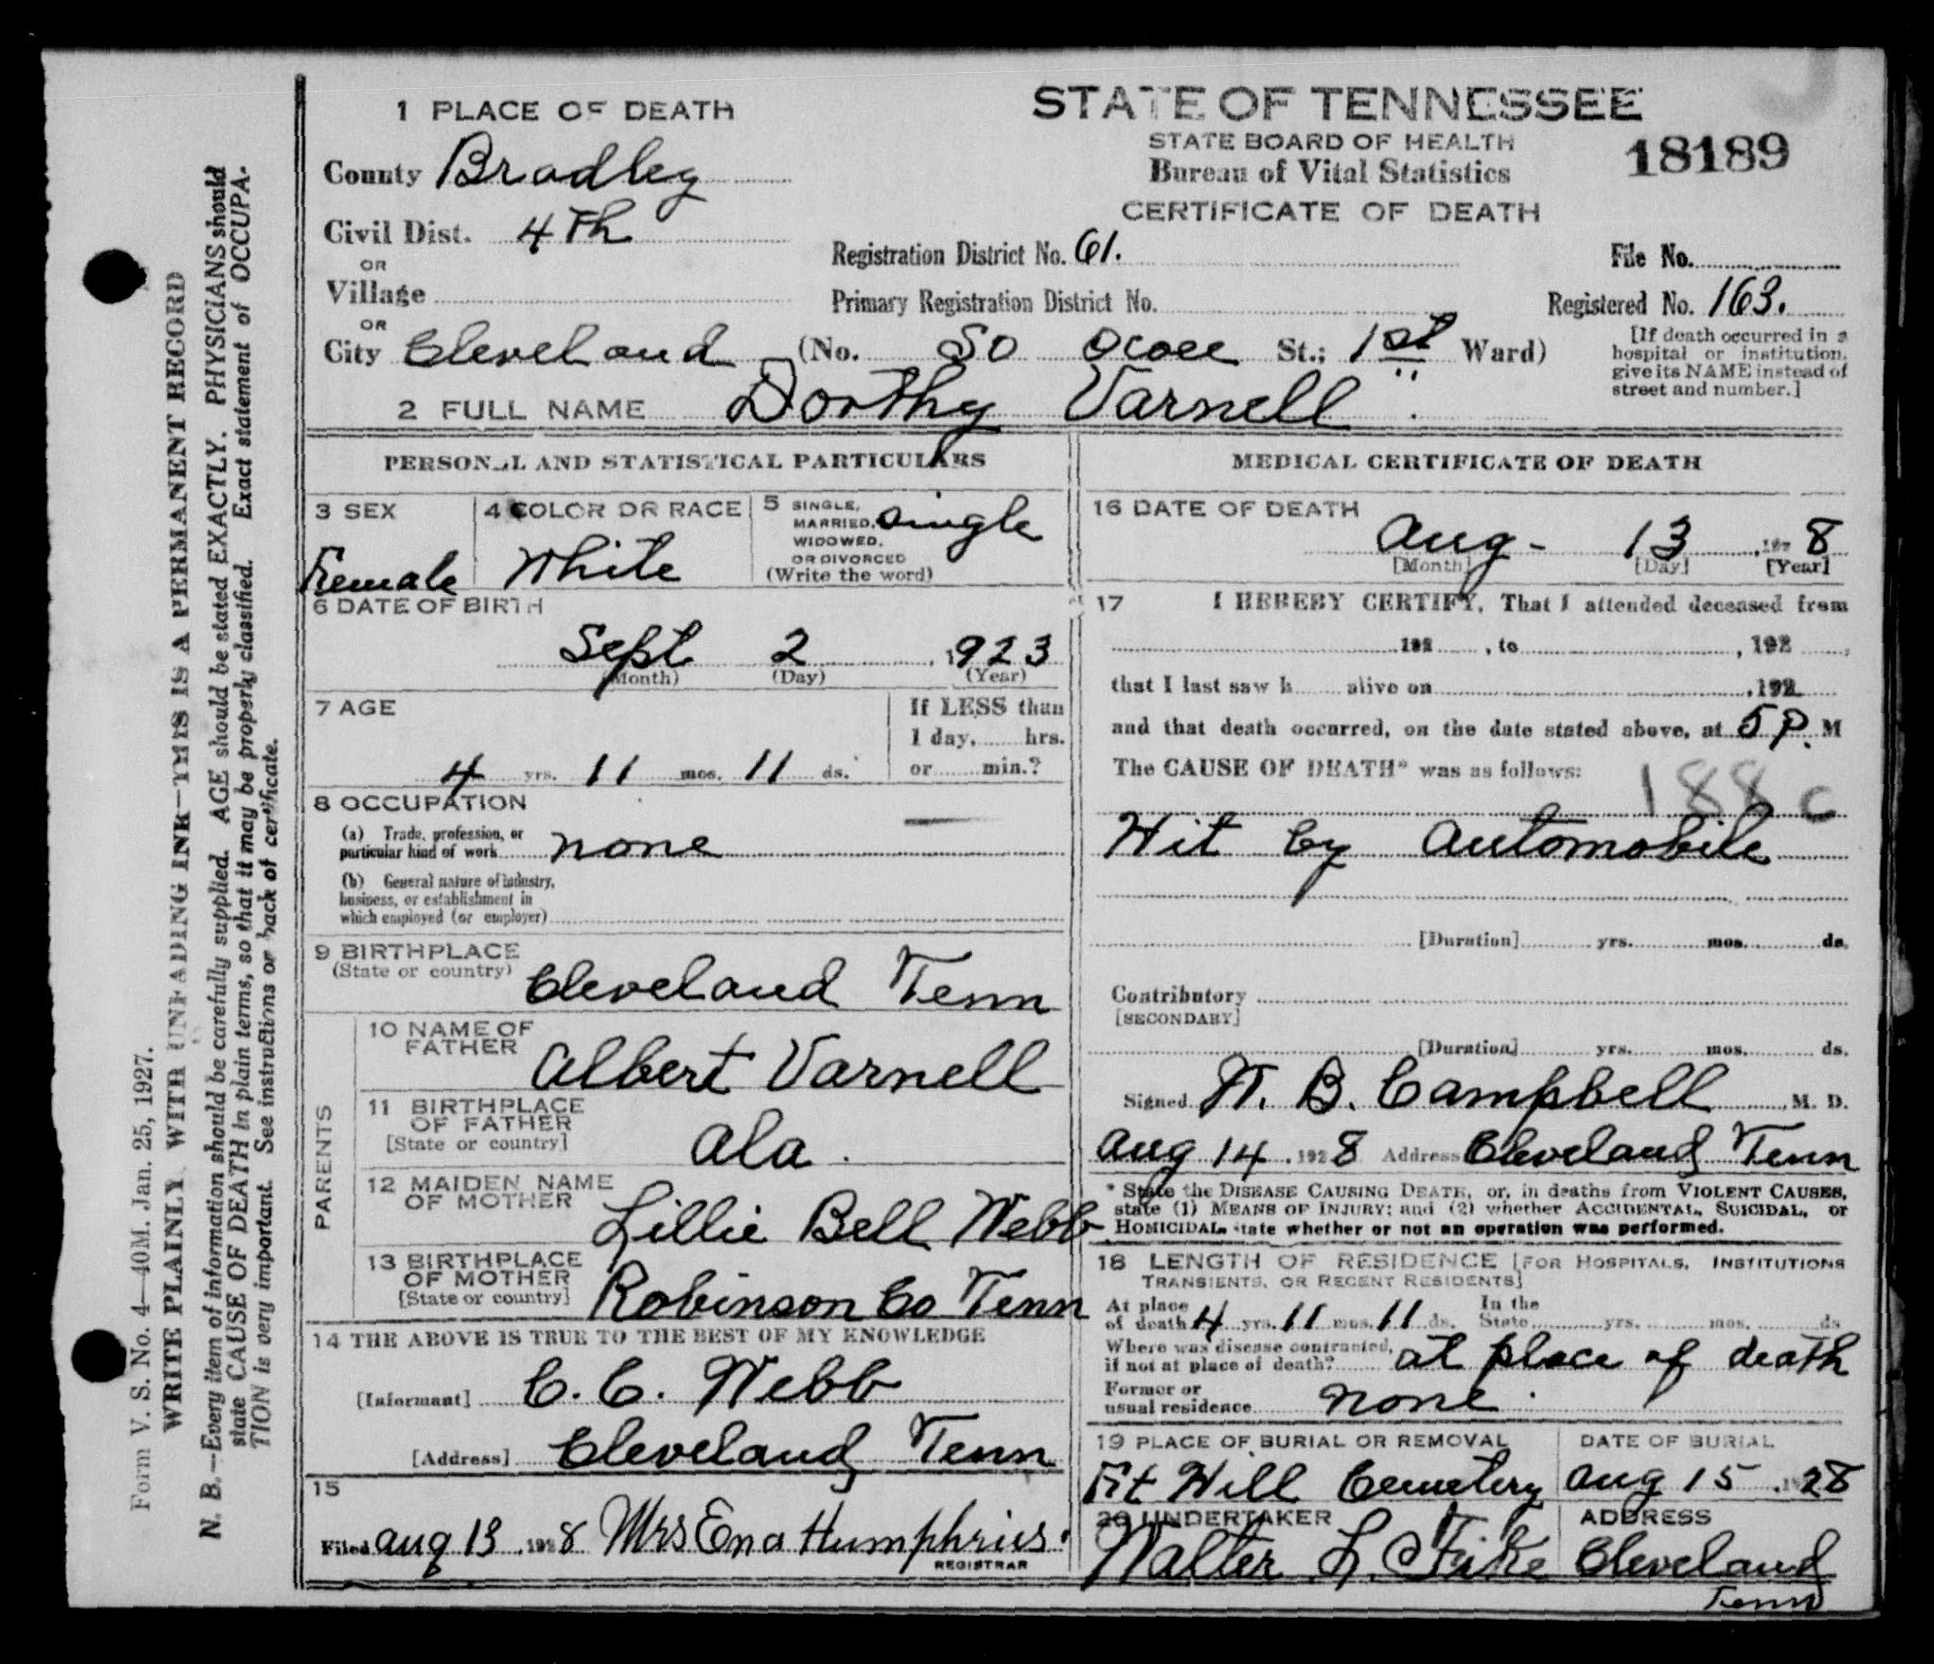 Form V. S. No. 4—40M. Jan. 25, 1927.
WRITE PLAINLY WITH UNFADING INK—THIS IS A PERMANENT RECORD
N. B.—Every item of information should be carefully supplied. AGE should be stated EXACTLY. PHYSICIANS should
state CAUSE OF DEATH in plain terms, so that it may be properly classified. Exact statement of OCCUPA-
TION is very important. See instructions or back of certificate.
1 PLACE OF DEATH
County Bradley
Civil Dist. 4Th
OR
Village
OR
City Cleveland (No. So Ocoee St.; 1st Ward)
STATE OF TENNESSEE
STATE BOARD OF HEALTH
Bureau of Vital Statistics
CERTIFICATE OF DEATH
18189
Registration District No. 61.
File No.
Primary Registration District No.
Registered No. 163.
[If death occurred in a
hospital or institution,
give its NAME instead of
street and number.]
2 FULL NAME Dorthy Varnell
PERSONAL AND STATISTICAL PARTICULARS
3 SEX
Female
4 COLOR OR RACE
White
5 SINGLE,
MARRIED,
WIDOWED,
OR DIVORCED
(Write the word)
Single
6 DATE OF BIRTH
Sept 2, 1923
(Month) (Day) (Year)
7 AGE
4 yrs. 11 mos. 11 ds.
If LESS than
1 day, hrs.
or min.?
8 OCCUPATION
(a) Trade, profession, or
particular kind of work none
(b) General nature of industry,
business, or establishment in
which employed (or employer)
9 BIRTHPLACE
(State or country) Cleveland Tenn
PARENTS
10 NAME OF
FATHER Albert Varnell
11 BIRTHPLACE
OF FATHER
[State or country] Ala.
12 MAIDEN NAME
OF MOTHER Lillie Bell Webb
13 BIRTHPLACE
OF MOTHER
[State or country] Robinson Co Tenn
14 THE ABOVE IS TRUE TO THE BEST OF MY KNOWLEDGE
[Informant] C. C. Webb
[Address] Cleveland Tenn
15
Filed Aug 13, 1928 Mrs Ena Humphries.
REGISTRAR
MEDICAL CERTIFICATE OF DEATH
16 DATE OF DEATH
Aug - 13, 1928
[Month] [Day] [Year]
17 I HEREBY CERTIFY, That I attended deceased from
192 , to , 192 ,
that I last saw h alive on , 192
and that death occurred, on the date stated above, at 5 P. M
The CAUSE OF DEATH* was as follows:
188c
Hit by Automobile
[Duration] yrs. mos. ds.
Contributory
[SECONDARY]
[Duration] yrs. mos. ds.
Signed W. B. Campbell, M. D.
Aug 14, 1928 Address Cleveland Tenn
* State the DISEASE CAUSING DEATH, or, in deaths from VIOLENT CAUSES,
state (1) MEANS OF INJURY; and (2) whether ACCIDENTAL, SUICIDAL, or
HOMICIDAL state whether or not an operation was performed.
18 LENGTH OF RESIDENCE [FOR HOSPITALS, INSTITUTIONS
TRANSIENTS, OR RECENT RESIDENTS]
At place
of death 4 yrs. 11 mos. 11 ds. In the
State yrs. mos. ds
Where was disease contracted,
if not at place of death? at place of death
Former or
usual residence none.
19 PLACE OF BURIAL OR REMOVAL
Ft Hill Cemetery
DATE OF BURIAL
Aug 15, 1928
20 UNDERTAKER
Walter L. Fike
ADDRESS
Cleveland
Tenn